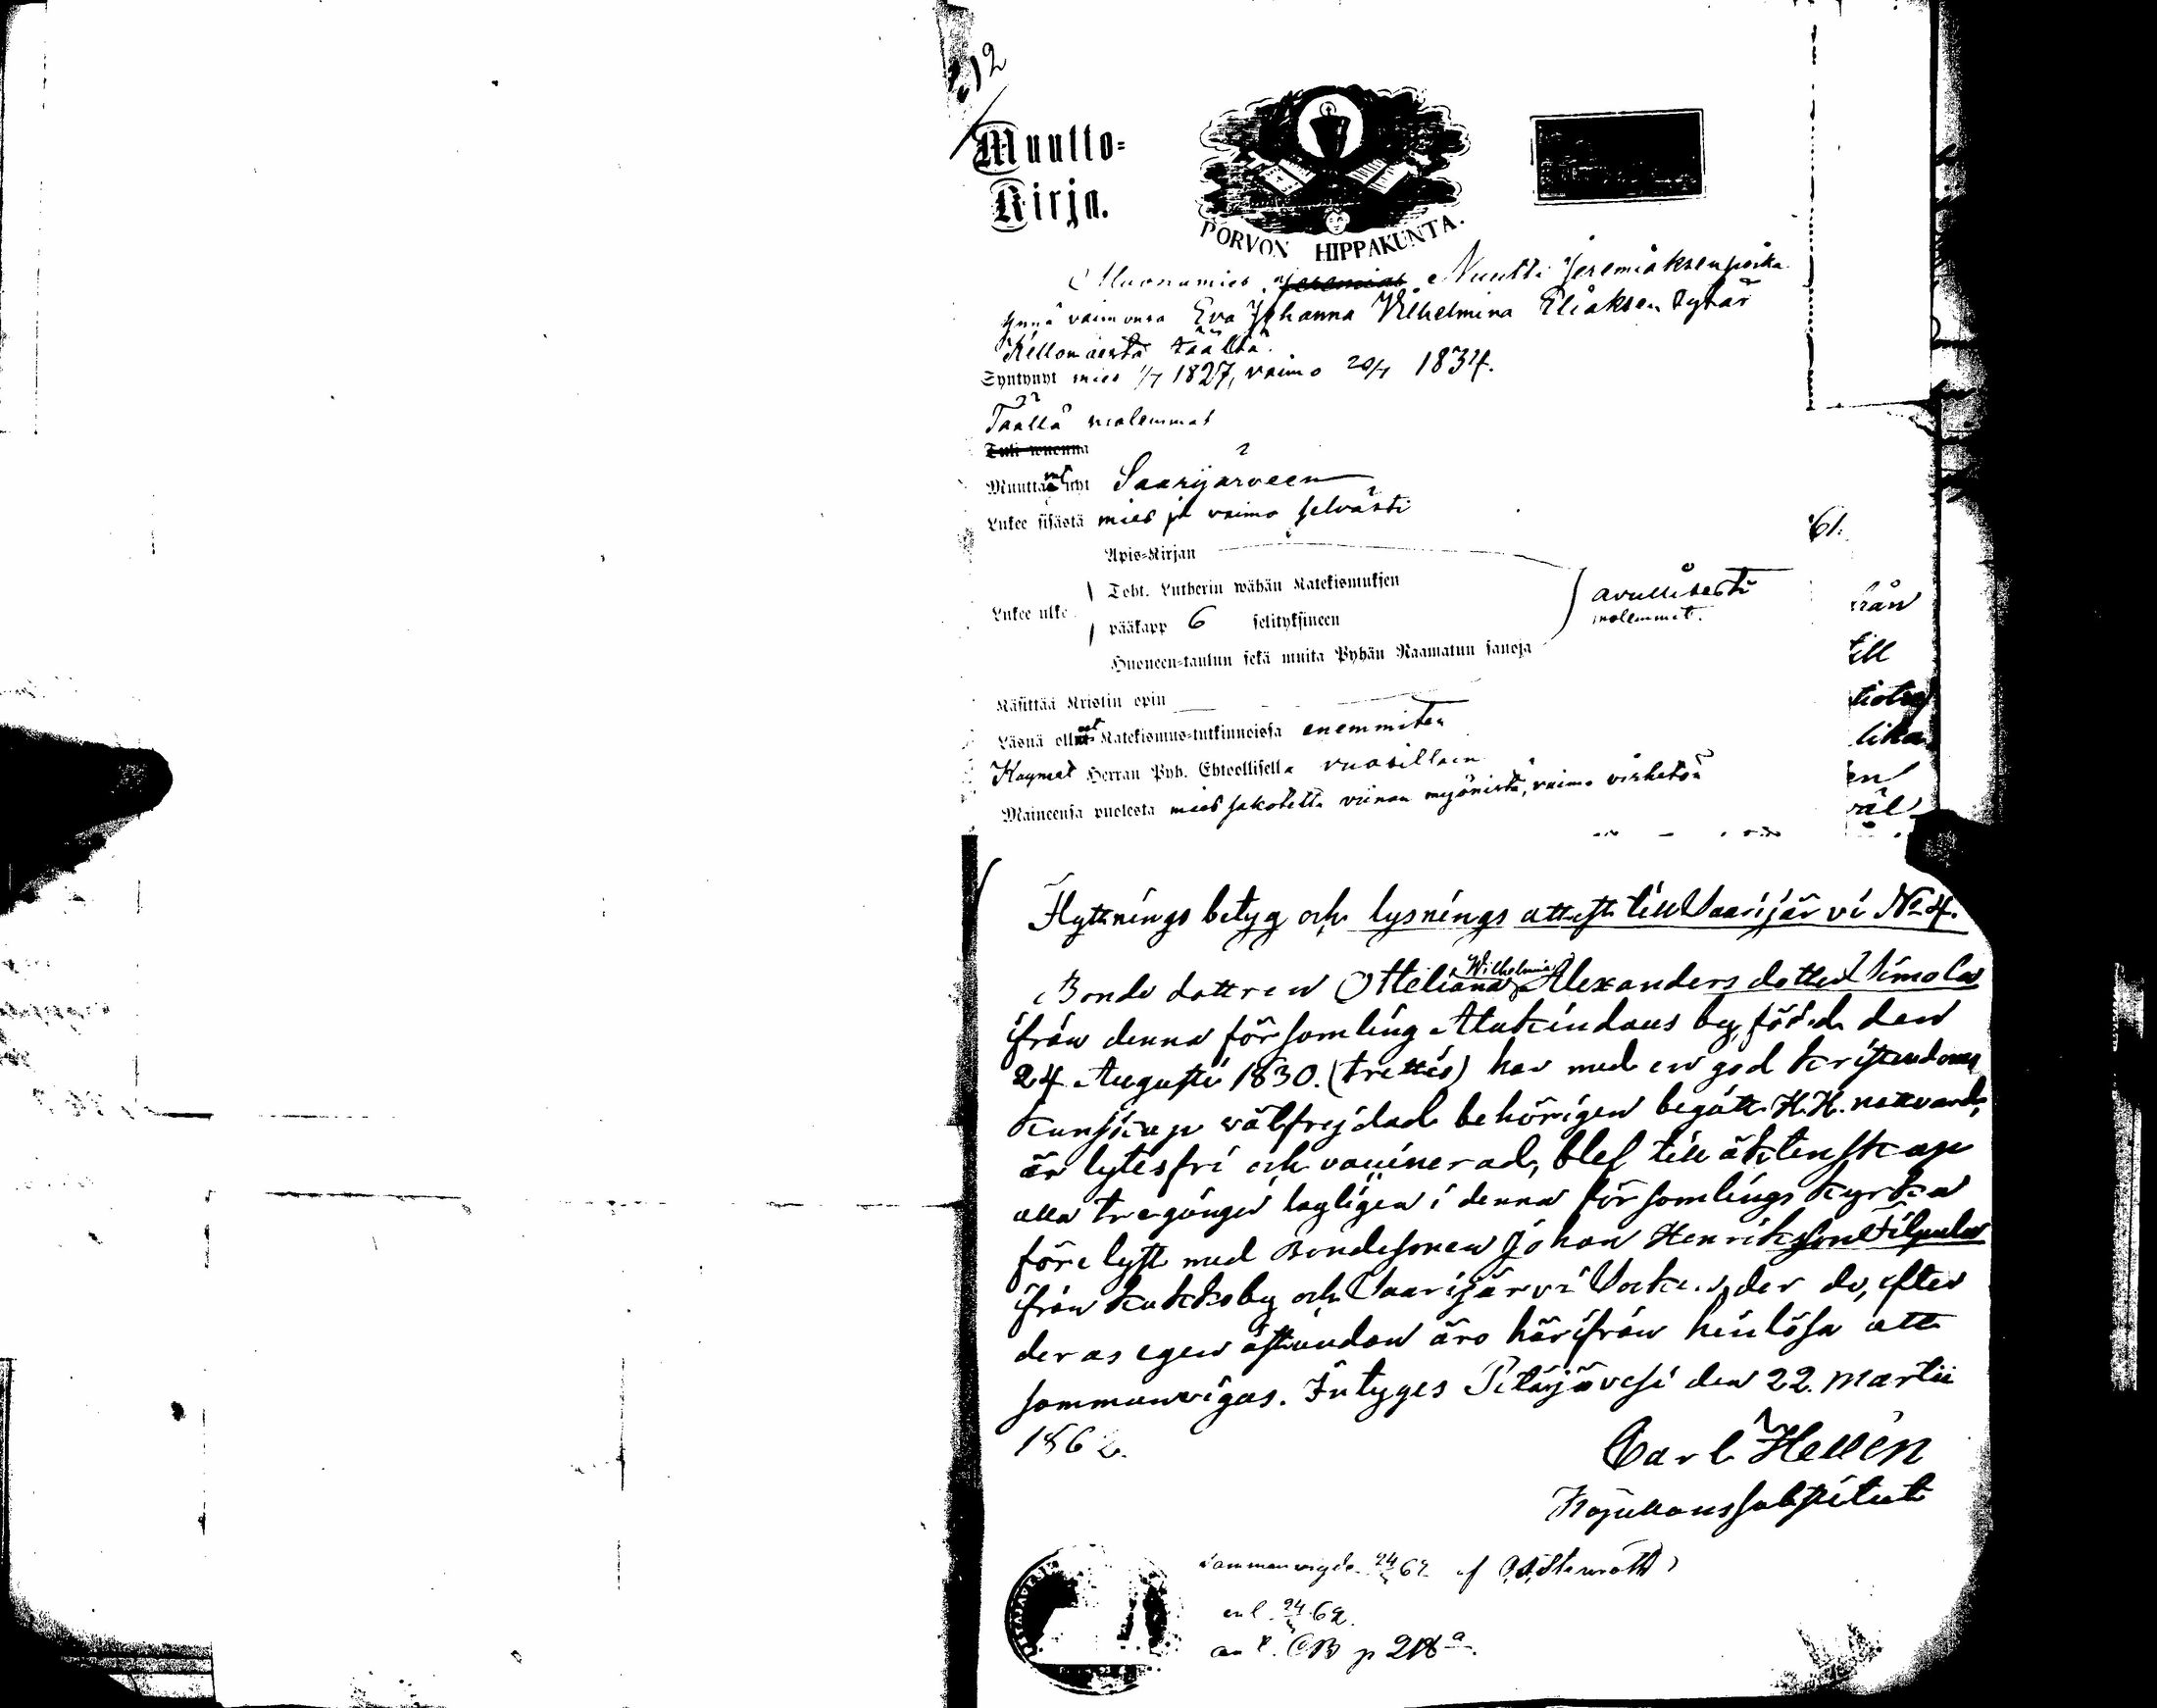 12
Muutto=
Kirja.
PORVON HIPPAKUNTA.
Muonamies Jeremias Nuutti Jeremiaksenpoika
ynnä vaimonsa Eva Johanna Vilhelmina Eliaksen tytär
Kellomäestä täältä.
Syntynyt mies 1/7 1827, vaimo 20/7 1834.
Täällä molemmat
Tuli wuonna
Muutta vat nyt Saarijärveen
Lukee sisästä mies ja vaimo selvästi
61.
Apis=Kirjan
Toht. Lutherin wähän Katekismuksen
avullisesti
Lukee ulko
pääkapp 6 selityksineen
molemmat.
Huoneen=taulun sekä muita Pyhän Raamatun sanoja
till
Käsittää Kristin opin
Läsnä ollut Katekismus=tutkinnoissa enemmiten
lika
Käyneet Herran Pyh. Ehtoollisella vuosittain
en
Maineensa puolesta mies sakotettu viinan myönistä, vaimo virhetön
väl
Flyttnings betyg och lysnings attest till Saarijärvi No 4.
Bonde dottren Otteliana Wilhelmina Alexanders dotter Simola
ifrån denna församling Alakindaus by, född den
24 Augusti 1830. (trettio) har med en god kristendoms
kunskap välfrejdad behörigen begått H.H. nattvard,
är lytesfri och vaccinerad, blef till äktenskap
alla tre gånger lagligen i denna församlings kyrka
förelyst med Bondesonen Johan Henriksson Filpula
ifrån Kukko by och Saarijärvi Socken, der de, efter
deras egen åstundan äro härifrån hinlösa att
sammanvigas. Intyges Pitäjävesi den 22. Martii
1862.
Carl Hellén
Kapellanssubstitut
PITÄJÄVESI
Sammanvigde 24/ 62 af
enl. 24/ 62.
an t. CB p 218 a.